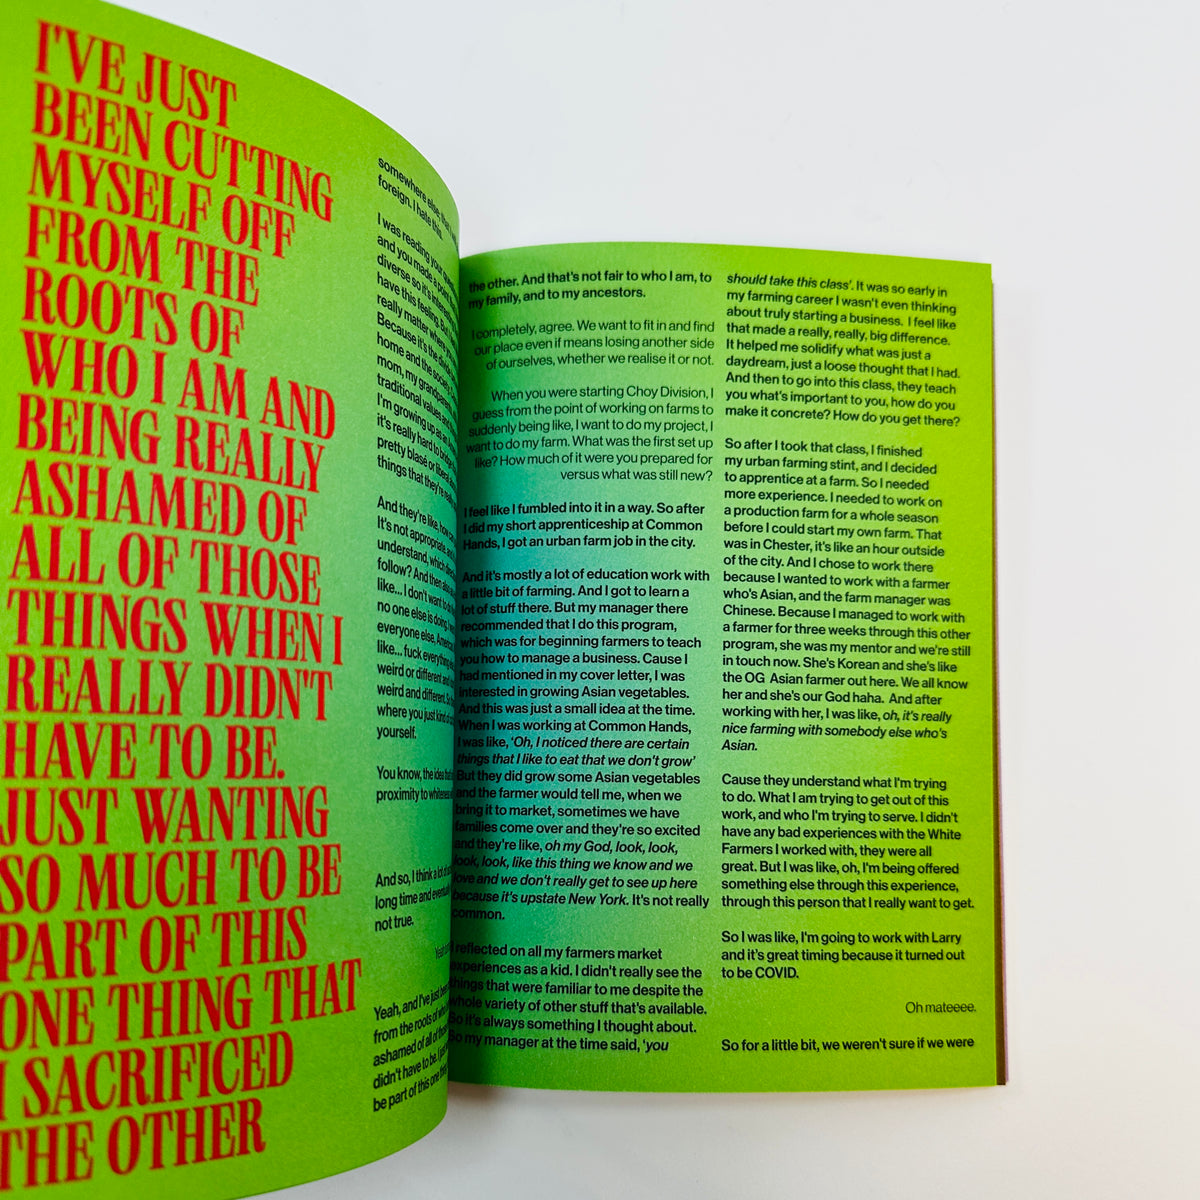 I'VE JUST
BEEN CUTTING
MYSELF OFF
FROM THE
ROOTS OF
WHO I AM AND
BEING REALLY
ASHAMED OF
ALL OF THOSE
THINGS WHEN I
REALLY DIDN'T
HAVE TO BE.
JUST WANTING
SO MUCH TO BE
PART OF THIS
ONE THING THAT
I SACRIFICED
THE OTHER
somewhere else,
foreign. I hate this.
I was reading your
and you made a point
diverse so it's
have this feeling. But
really matter where
Because it's the
home and the society.
mom, my grandparents
traditional values and
I'm growing up as an
it's really hard to
pretty blasé or liberal
things that they're
And they're like, how
It's not appropriate
understand, which
follow? And then
like... I don't want to
no one else is doing,
everyone else.
like... fuck everything
weird or different and
weird and different. So
where you just kind of
yourself.
You know, the idea that
proximity to whiteness
And so, I think a lot of
long time and
not true.
Yeah, and I've just been
from the roots of who
ashamed of all of those
didn't have to be. I just
be part of this one thing
the other. And that's not fair to who I am, to
my family, and to my ancestors.
I completely, agree. We want to fit in and find
our place even if means losing another side
of ourselves, whether we realise it or not.
When you were starting Choy Division, I
guess from the point of working on farms to
suddenly being like, I want to do my project, I
want to do my farm. What was the first set up
like? How much of it were you prepared for
versus what was still new?
I feel like I fumbled into it in a way. So after
I did my short apprenticeship at Common
Hands, I got an urban farm job in the city.
And it's mostly a lot of education work with
a little bit of farming. And I got to learn a
lot of stuff there. But my manager there
recommended that I do this program,
which was for beginning farmers to teach
you how to manage a business. Cause I
had mentioned in my cover letter, I was
interested in growing Asian vegetables.
And this was just a small idea at the time.
When I was working at Common Hands,
I was like, 'Oh, I noticed there are certain
things that I like to eat that we don't grow'
But they did grow some Asian vegetables
and the farmer would tell me, when we
bring it to market, sometimes we have
families come over and they're so excited
and they're like, oh my God, look, look,
look, look, like this thing we know and we
love and we don't really get to see up here
because it's upstate New York. It's not really
common.
I reflected on all my farmers market
experiences as a kid. I didn't really see the
things that were familiar to me despite the
whole variety of other stuff that's available.
So it's always something I thought about.
So my manager at the time said, 'you
should take this class'. It was so early in
my farming career I wasn't even thinking
about truly starting a business. I feel like
that made a really, really, big difference.
It helped me solidify what was just a
daydream, just a loose thought that I had.
And then to go into this class, they teach
you what's important to you, how do you
make it concrete? How do you get there?
So after I took that class, I finished
my urban farming stint, and I decided
to apprentice at a farm. So I needed
more experience. I needed to work on
a production farm for a whole season
before I could start my own farm. That
was in Chester, it's like an hour outside
of the city. And I chose to work there
because I wanted to work with a farmer
who's Asian, and the farm manager was
Chinese. Because I managed to work with
a farmer for three weeks through this other
program, she was my mentor and we're still
in touch now. She's Korean and she's like
the OG Asian farmer out here. We all know
her and she's our God haha. And after
working with her, I was like, oh, it's really
nice farming with somebody else who's
Asian.
Cause they understand what I'm trying
to do. What I am trying to get out of this
work, and who I'm trying to serve. I didn't
have any bad experiences with the White
Farmers I worked with, they were all
great. But I was like, oh, I'm being offered
something else through this experience,
through this person that I really want to get.
So I was like, I'm going to work with Larry
and it's great timing because it turned out
to be COVID.
Oh mateeee.
So for a little bit, we weren't sure if we were